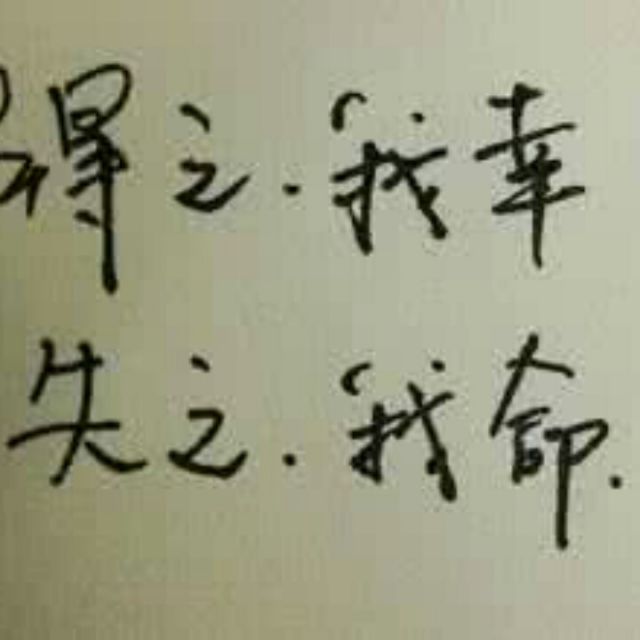 得之·我幸
失之·我命.